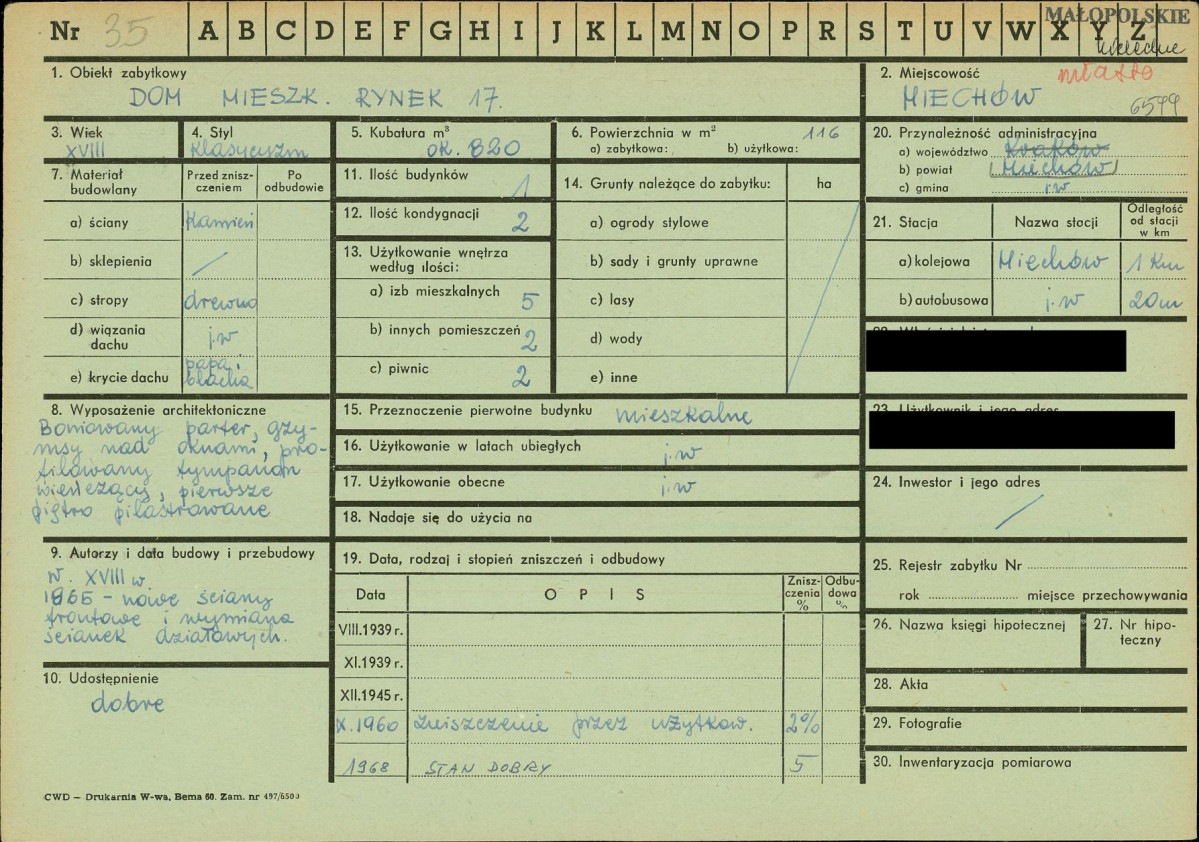 Nr 35 A B C D E F G H I J K L M N O P R S T U V W X Y Z
MAŁOPOLSKIE
1. Obiekt zabytkowy
DOM MIESZK. RYNEK 17.
2. Miejscowość
miasto
MIECHÓW
6599
3. Wiek
XVIII
4. Styl
Klasycyzm
5. Kubatura m³
ok. 820
6. Powierzchnia w m² 116
a) zabytkowa: b) użytkowa:
20. Przynależność administracyjna
a) województwo Kraków
b) powiat Miechów
c) gmina j.w
7. Materiał budowlany
Przed zniszczeniem
Po odbudowie
a) ściany Kamień
b) sklepienia /
c) stropy drewno
d) wiązania dachu j.w
e) krycie dachu papa i blacha
11. Ilość budynków 1
12. Ilość kondygnacji 2
13. Użytkowanie wnętrza według ilości:
a) izb mieszkalnych 5
b) innych pomieszczeń 2
c) piwnic 2
14. Grunty należące do zabytku: ha
a) ogrody stylowe
b) sady i grunty uprawne
c) lasy
d) wody
e) inne
21. Stacja
Nazwa stacji
Odległość od stacji w km
a) kolejowa Miechów 1 Km
b) autobusowa j.w 20m
8. Wyposażenie architektoniczne
Boniowany parter, gzy-
msy nad oknami, pro-
filowany tympanon
wieńczący, pierwsze
piętro pilastrowane
15. Przeznaczenie pierwotne budynku mieszkalne
16. Użytkowanie w latach ubiegłych j.w
17. Użytkowanie obecne j.w
18. Nadaje się do użycia na
23. Użytkownik i jego adres
24. Inwestor i jego adres
/
9. Autorzy i data budowy i przebudowy
w. XVIII w.
1965 - nowe ściany
frontowe i wymiana
ścianek działowych.
10. Udostępnienie
dobre
19. Data, rodzaj i stopień zniszczeń i odbudowy
Data OPIS Zniszczenia % Odbudowa %
VIII.1939 r.
XI.1939 r.
XII.1945 r.
X.1960 Zniszczenie przez użytkow. 2%
1968 STAN DOBRY 5
25. Rejestr zabytku Nr
rok miejsce przechowywania
26. Nazwa księgi hipotecznej
27. Nr hipoteczny
28. Akta
29. Fotografie
30. Inwentaryzacja pomiarowa
CWD — Drukarnia W-wa, Bema 60. Zam. nr 497/6500